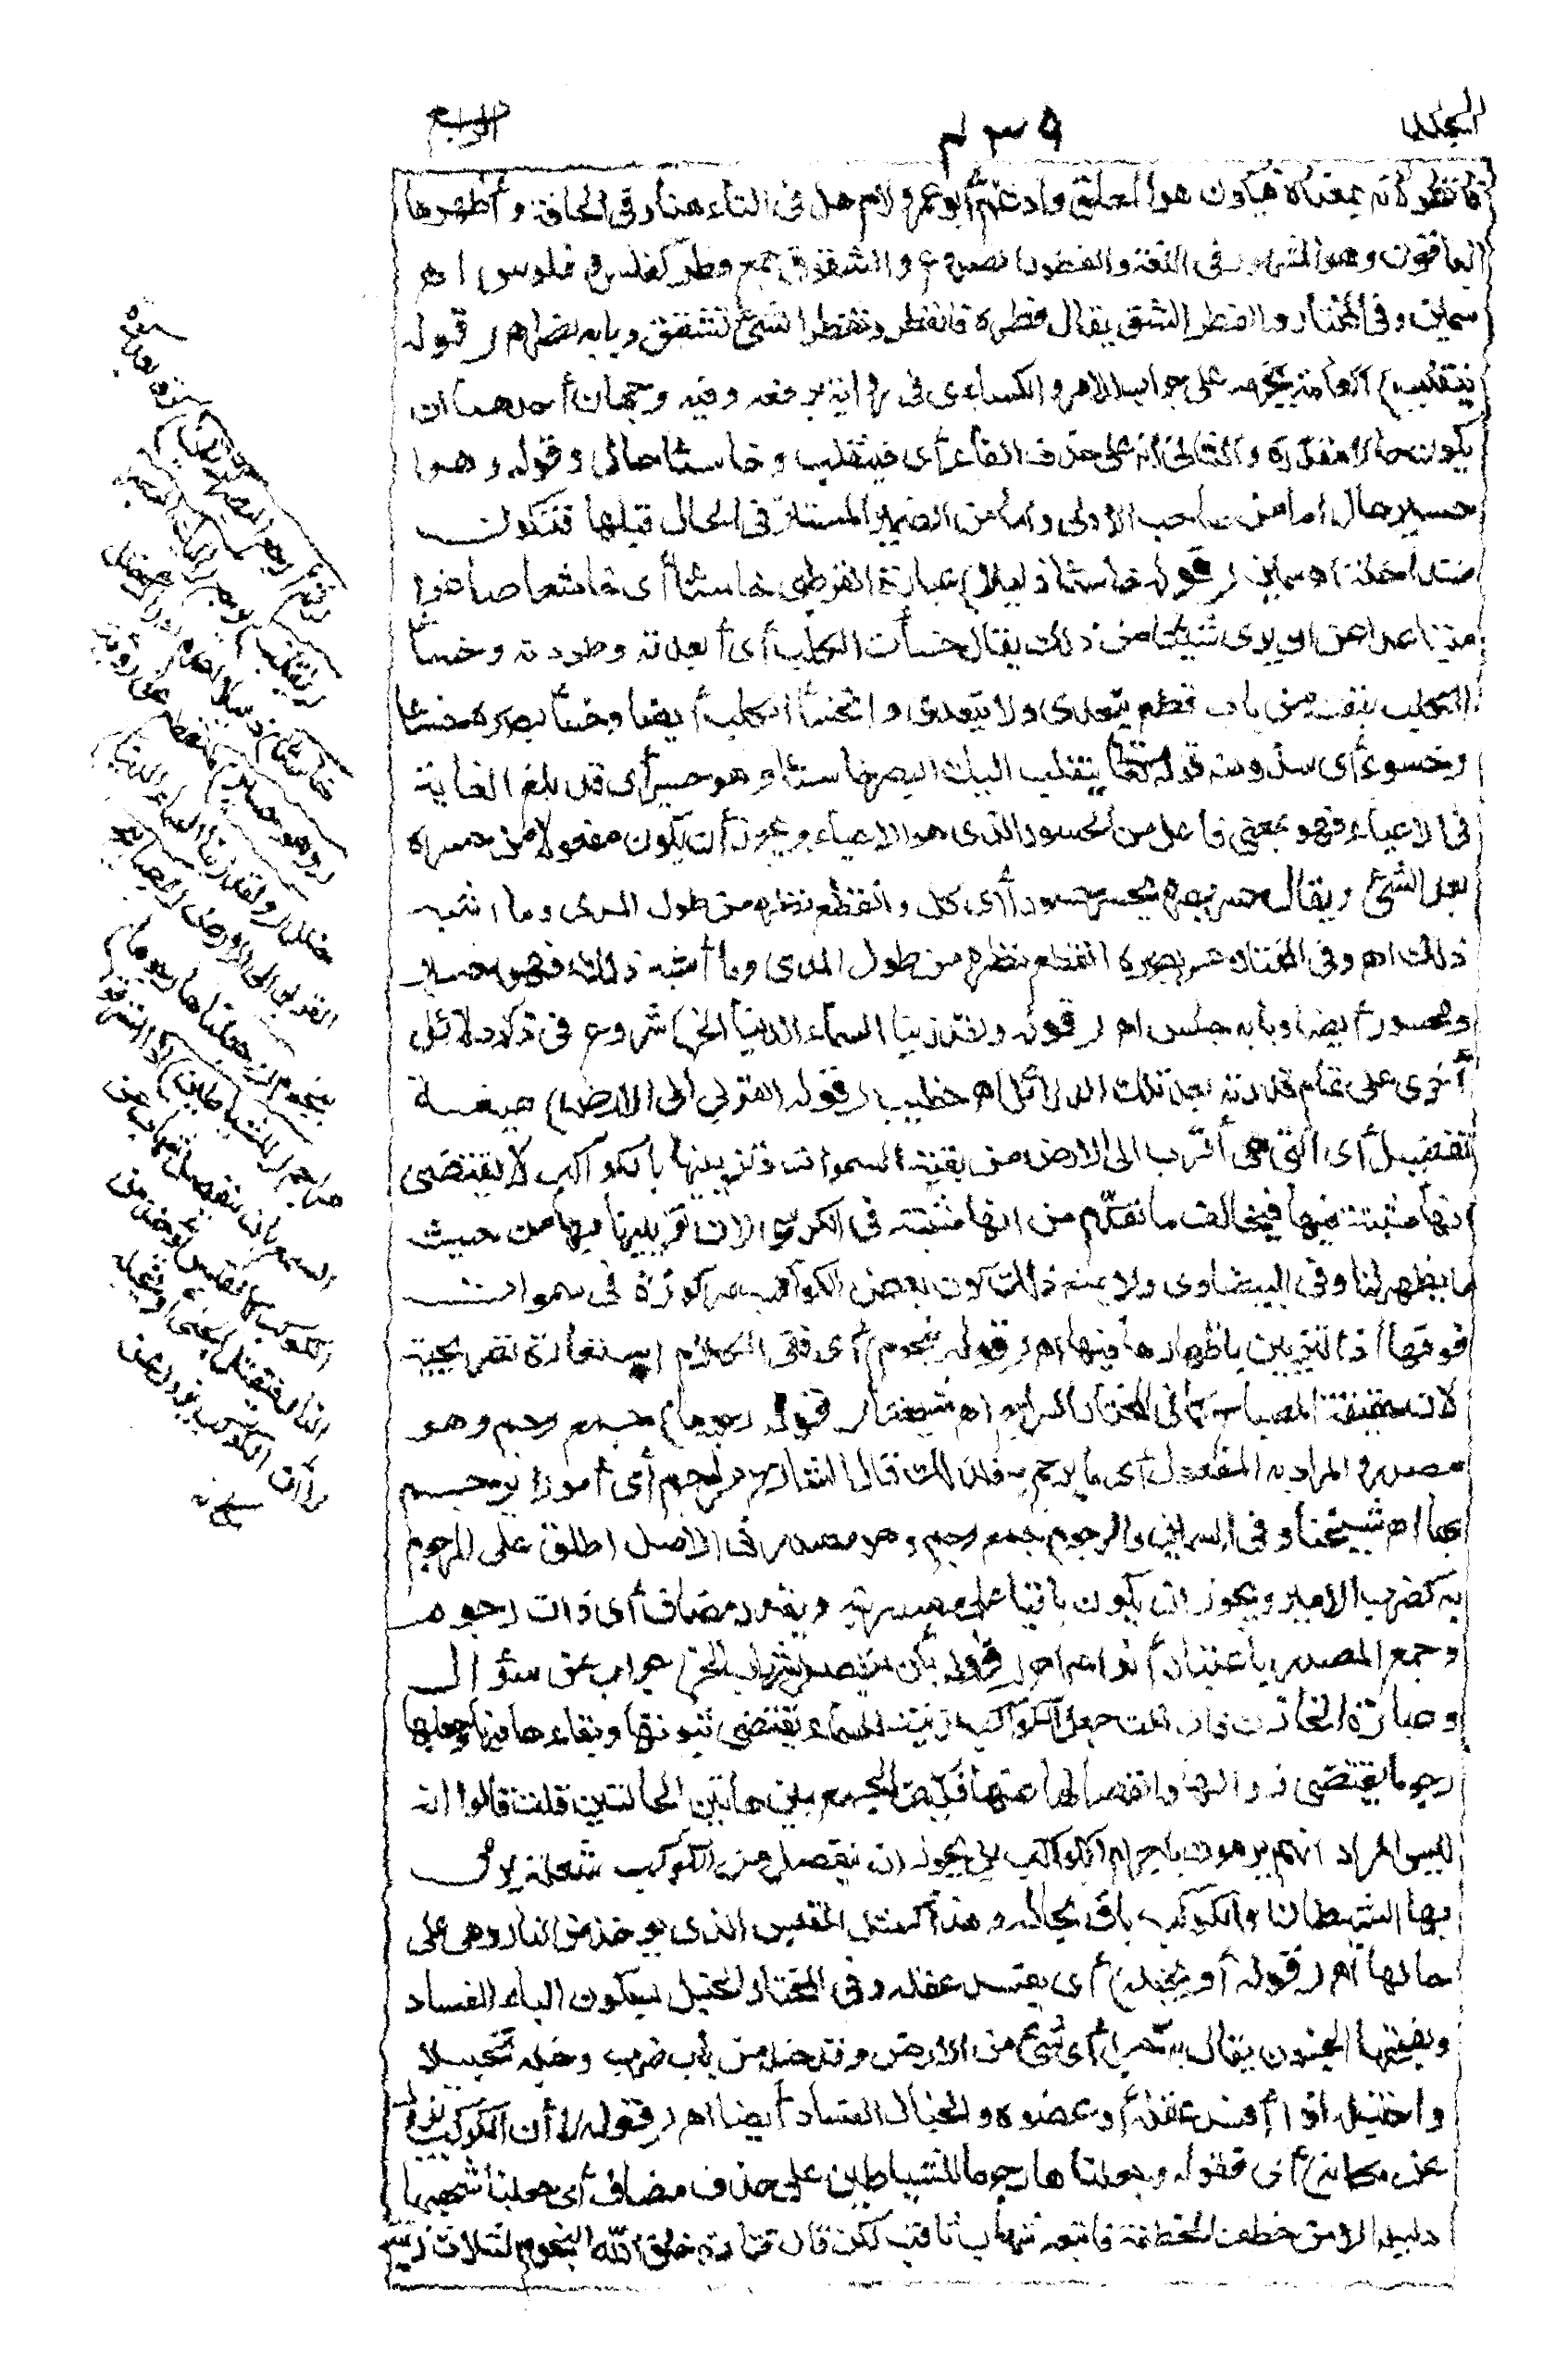 المجلد
٤٣٩
الرابع
فانظر لانه بمعناه فيكون هو المعلق وادغم أبو عمرو لام هل فى التاء هنا وفى الحاقة وأظهرها
الباقون وهو المشهور فى اللغة والفطور الصدوع والشقوق جمع فطر كفلس وفلوس اه
سمين وفى المختار والفطر الشق يقال فطره فانفطر وتفطر الشئ تشقق وبابه نصر اه (قوله
ينقلب) العامة بجزمه على جواب الامر والكسائى فى رواية برفعه وفيه وجهان أحدهما ان
يكون حالا مقدرة والثانى انه على حذف الفاء أى فينقلب وخاسئا حال وقوله وهو
حسير حال اما من صاحب الاولى واما من الضمير المستتر فى الحال قبلها فتكون
متداخلة اه سمين (قوله خاسئا ذليلا) عبارة القرطبى خاسئا أى خاشعا صاغرا
متباعدا عن ان يرى شيئا من ذلك يقال خسأت الكلب أى أبعدته وطردته وخسأ
الكلب بنفسه من باب قطع يتعدى ولا يتعدى وانخسأ الكلب أيضا وخسأ بصره خسئا
وخسوءا أى سدر ومنه قوله تعالى ينقلب اليك البصر خاسئا وهو حسير أى قد بلغ الغاية
فى الاعياء فهو بمعنى فاعل من الحسور الذى هو الاعياء ويجوز أن يكون مفعولا من حسره
بعد الشئ ويقال حسر بصره يحسر حسورا أى كل وانقطع نظره من طول المدى وما أشبه
ذلك اه وفى المختار حسر بصره انقطع نظره من طول المدى وما أشبه ذلك فهو حسير
ومحسور أيضا وبابه جلس اه (قوله ولقد زينا السماء الدنيا الخ) شروع فى ذكر دلائل
أخرى على تمام قدرته بعد تلك الدلائل اه خطيب (قوله القربى الى الارض) صيغة
تفضيل أى التى هى أقرب الى الارض من بقية السموات وتزيينها بالكواكب لا يقتضى
انها مثبتة فيها فيخالف ما تقدم من انها مثبتة فى الكرسى لان تزيينها بها من حيث
ما يظهر لنا وفى البيضاوى ولا يمنع ذلك كون بعض الكواكب مركوزة فى سموات
فوقها اذ التزيين باظهارها فيها اه (قوله بنجوم) أى ففى الكلام استعارة تصريحية
لان حقيقة المصباح كما فى المختار السراج اه شيخنا (قوله رجوما) جمع رجم وهو
مصدر والمراد به المفعول أى ما يرجم به فلذلك قال الشارح مراجم أى أمورا يرجم
بها اه شيخنا وفى السمين والرجوم جمع رجم وهو مصدر فى الاصل اطلق على المرجوم
به كضرب الامير ويجوز ان يكون باقيا على مصدريته ويقدر مضاف أى ذات رجوم
وجمع المصدر باعتبار أنواعه اه (قوله بأن ينفصل شهاب الخ) جواب عن سؤال
وعبارة الخازن فان قلت جعل الكواكب زينة للسماء يقتضى ثبوتها وبقاءها فيها وجعلها
رجوما يقتضى زوالها وانفصالها عنها فكيف الجمع بين هاتين الحالتين قلت قالوا انه
ليس المراد انهم يرمون باجرام الكواكب بل يجوز ان ينفصل من الكوكب شعلة يرمى
بها الشيطان والكوكب باق بحاله وهذا كمثل القبس الذى يؤخذ من النار وهى على
حالها اه (قوله أو يخبله) أى يفسد عقله وفى المختار الخبل بسكون الباء الفساد
وبفتحها الجنون يقال به خبل أى شئ من الارض وقد خبله من باب ضرب وخبله تخبيلا
واختبله اذا أفسد عقله أو عضوه والخبال الفساد أيضا اه (قوله لا أن الكوكب يزول
عن مكانه) أى فقوله وجعلناها رجوما للشياطين على حذف مضاف أى جعلنا شهبها
دليله الا من خطف الخطفة فاتبعه شهاب ثاقب لكن قال قتادة خلق الله النجوم لثلاث زينة
كرة بعد كرة
(ينقلب) يرجع (اليك البصر
خاسئا) ذليلا لعدم ادراك خلل
(وهو حسير) منقطع عن رؤية
خلل (ولقد زينا السماء الدنيا)
القربى الى الارض (بمصابيح)
بنجوم (وجعلناها رجوما)
مراجم (للشياطين) اذا استرقوا
السمع بان ينفصل شهاب عن
الكوكب كالقبس يؤخذ من
النار فيقتل الجنى أو يخبله
لا أن الكوكب يزول عن
مكانه